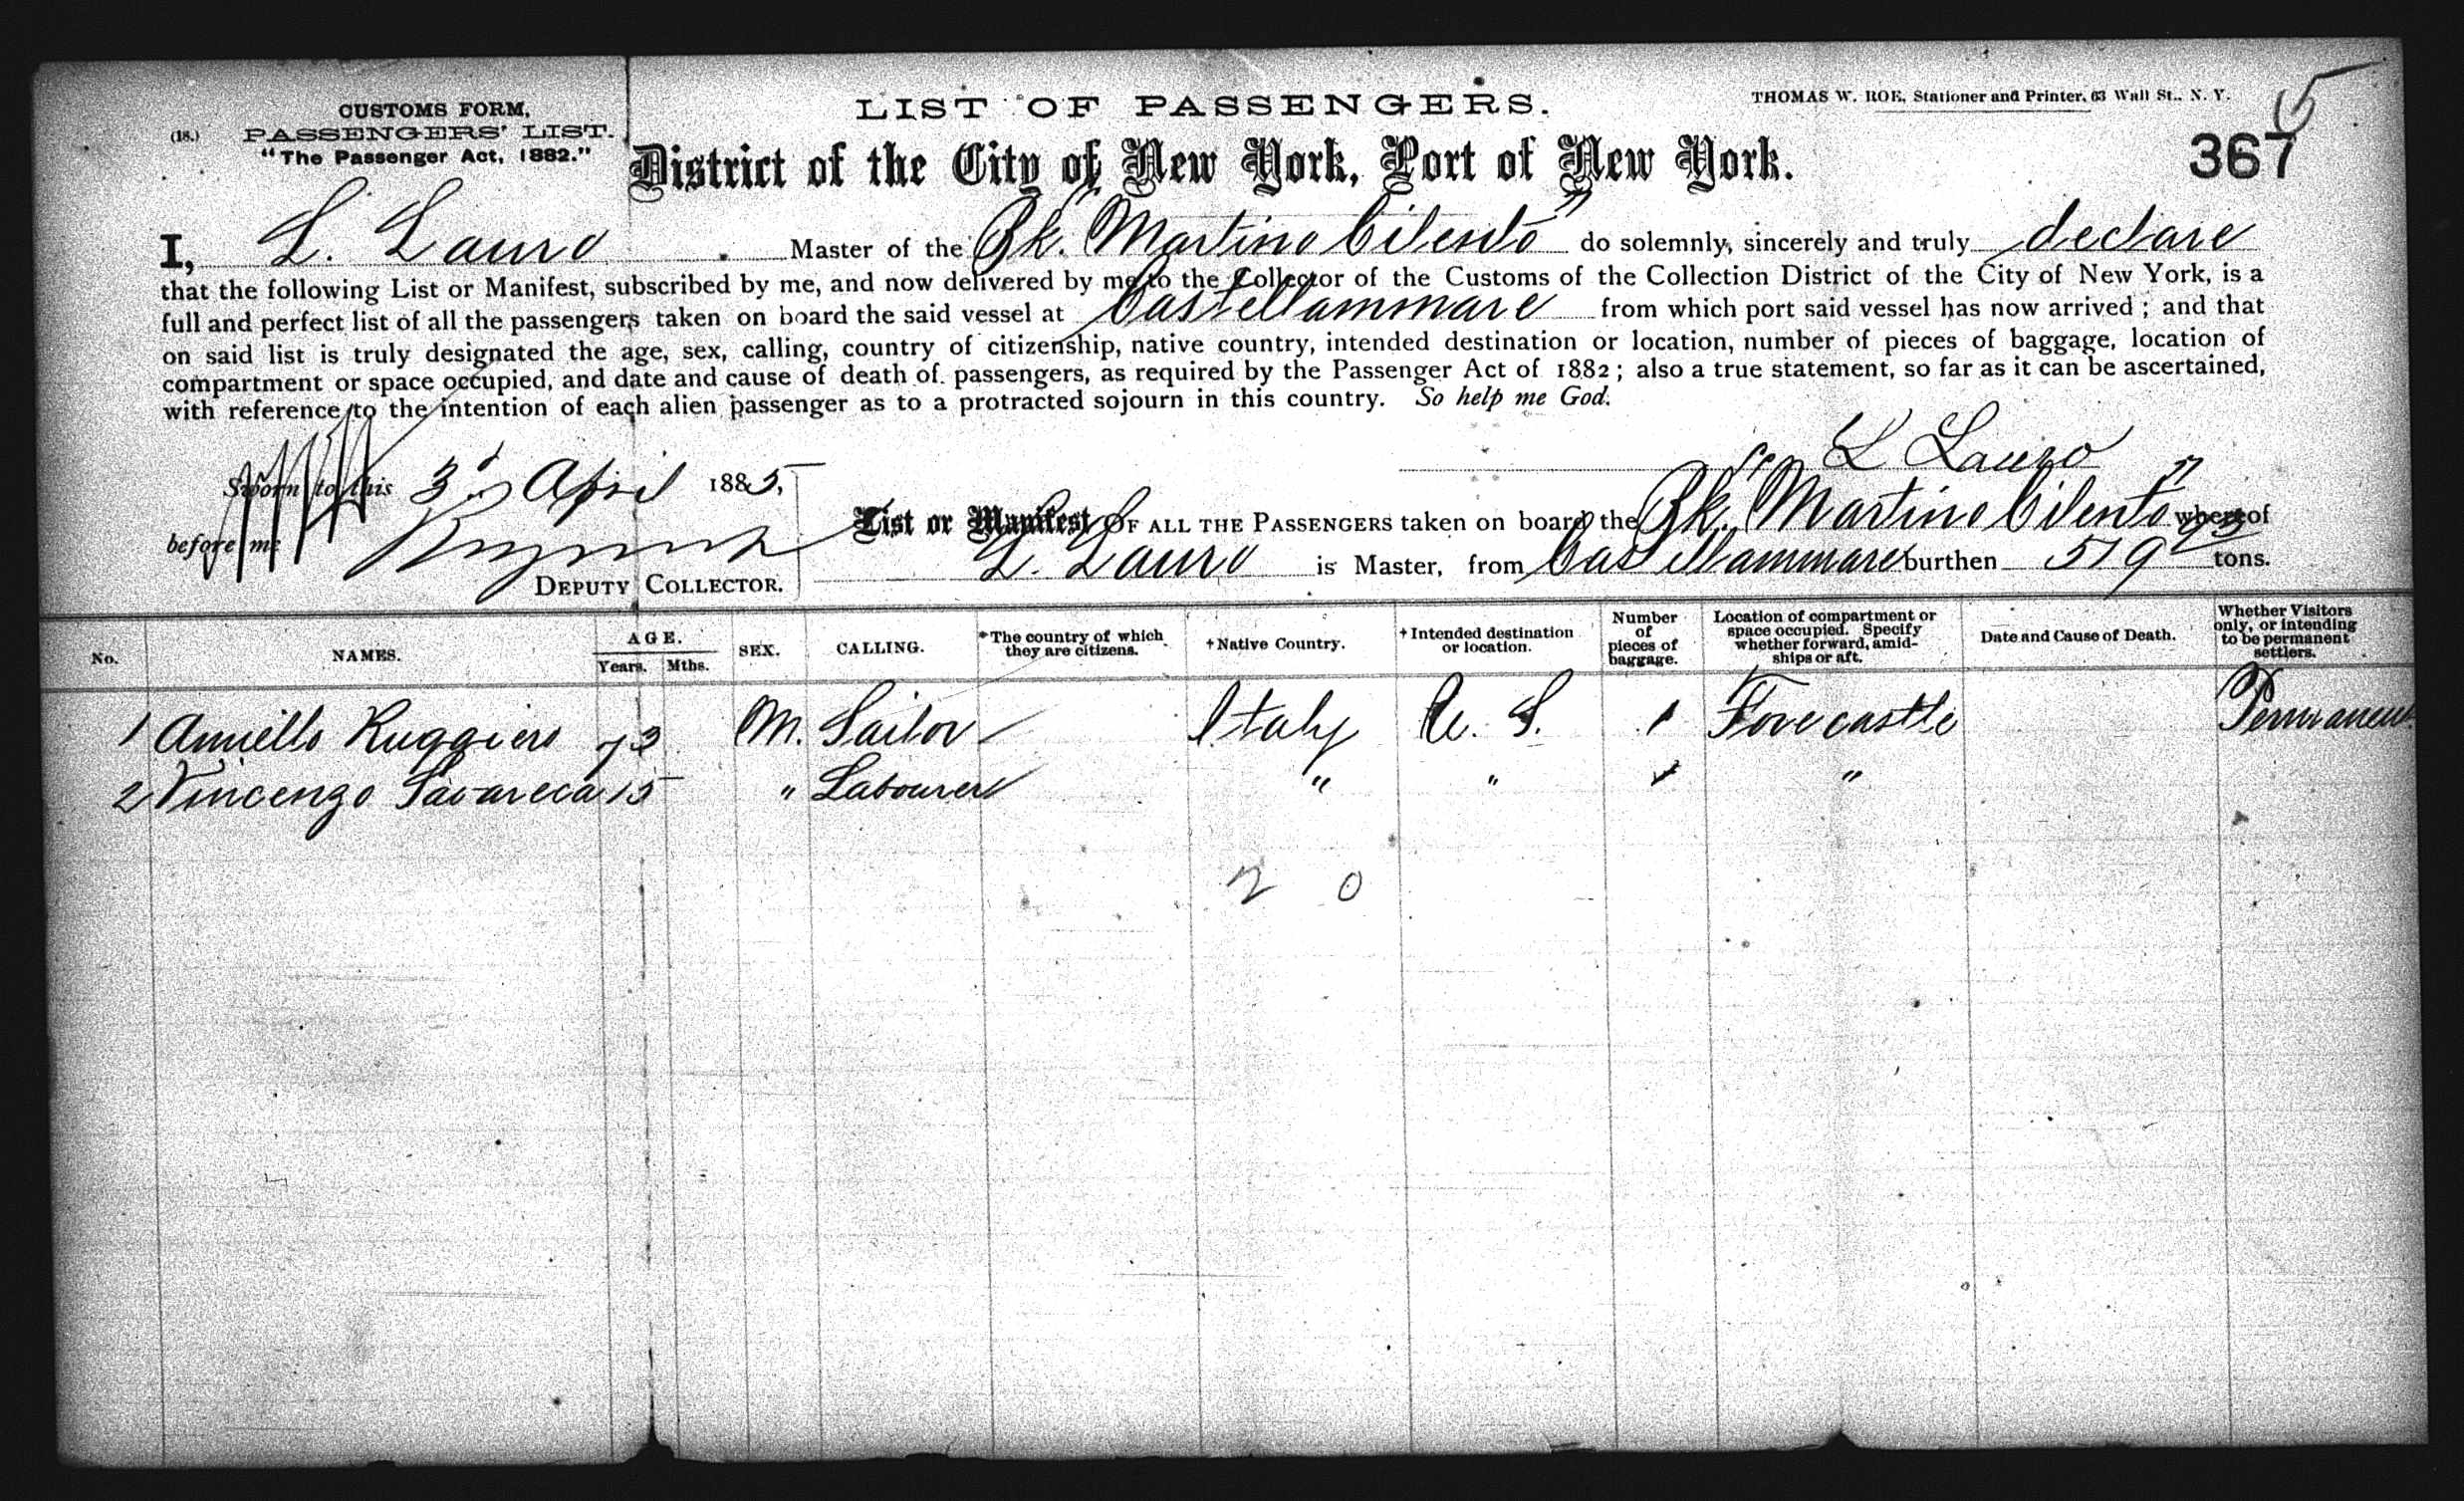 CUSTOMS FORM,
(18.) PASSENGERS' LIST.
"The Passenger Act, 1882."
LIST OF PASSENGERS.
THOMAS W. ROE, Stationer and Printer, 63 Wall St., N. Y.
5
367
District of the City of New York, Port of New York.
I, L. Lauro Master of the Bk. "Martino Cilento" do solemnly, sincerely and truly declare
that the following List or Manifest, subscribed by me, and now delivered by me to the Collector of the Customs of the Collection District of the City of New York, is a
full and perfect list of all the passengers taken on board the said vessel at Castellammare from which port said vessel has now arrived; and that
on said list is truly designated the age, sex, calling, country of citizenship, native country, intended destination or location, number of pieces of baggage, location of
compartment or space occupied, and date and cause of death of passengers, as required by the Passenger Act of 1882; also a true statement, so far as it can be ascertained,
with reference to the intention of each alien passenger as to a protracted sojourn in this country. So help me God.
L Lauro
Sworn to this 3d April 1885,
before me
DEPUTY COLLECTOR.
List or Manifest OF ALL THE PASSENGERS taken on board the Bk. "Martino Cilento" whereof
L. Lauro is Master, from Castellammare burthen 579 93 tons.
No. NAMES. AGE. Years. Mths. SEX. CALLING. *The country of which they are citizens. †Native Country. †Intended destination or location. Number of pieces of baggage. Location of compartment or space occupied. Specify whether forward, amidships or aft. Date and Cause of Death. Whether Visitors only, or intending to be permanent settlers.
1 Aniello Ruggiero 73 M. Sailor Italy U. S. 1 Forecastle Permanent
2 Vincenzo 15 " Labourer " " "
2 0